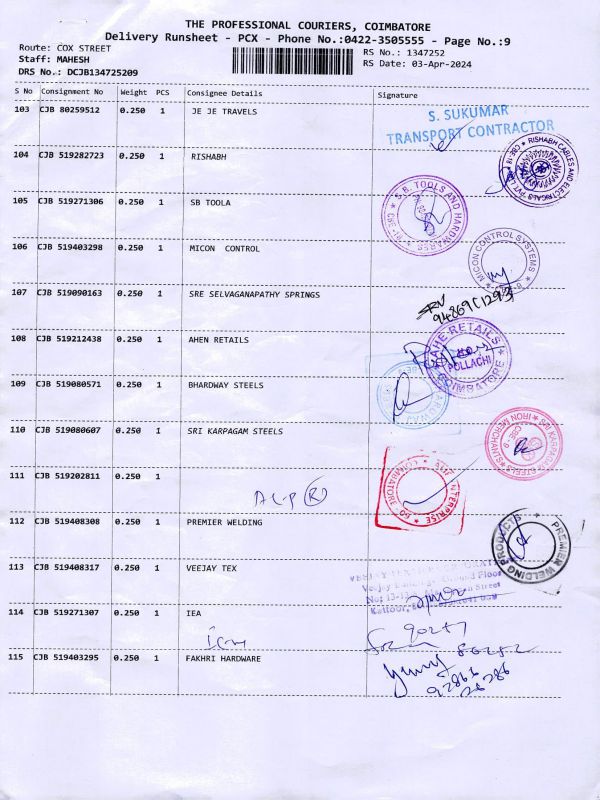 THE PROFESSIONAL COURIERS, COIMBATORE
Delivery Runsheet - PCX - Phone No.:0422-3505555 - Page No.:9
Route: COX STREET
RS No.: 1347252
Staff: MAHESH
RS Date: 03-Apr-2024
DRS No.: DCJB134725209
S No Consignment No Weight PCS Consignee Details Signature
103 CJB 80259512 0.250 1 JE JE TRAVELS
S. SUKUMAR
TRANSPORT CONTRACTOR
104 CJB 519282723 0.250 1 RISHABH
RISHABH CABLES AND ELECTRICALS
105 CJB 519271306 0.250 1 SB TOOLA
S.B. TOOLS AND HARDWARES
106 CJB 519403298 0.250 1 MICON CONTROL
MICON CONTROL SYSTEMS
107 CJB 519090163 0.250 1 SRE SELVAGANAPATHY SPRINGS
108 CJB 519212438 0.250 1 AHEN RETAILS
RETAILS
POLLACHI
COIMBATORE
109 CJB 519080571 0.250 1 BHARDWAY STEELS
110 CJB 519080607 0.250 1 SRI KARPAGAM STEELS
SRI KARPAGAM STEELS
IRON MERCHANTS
CBE-9
111 CJB 519202811 0.250 1
112 CJB 519408308 0.250 1 PREMIER WELDING
PREMIER WELDING PRODUCTS
113 CJB 519408317 0.250 1 VEEJAY TEX
114 CJB 519271307 0.250 1 IEA
115 CJB 519403295 0.250 1 FAKHRI HARDWARE